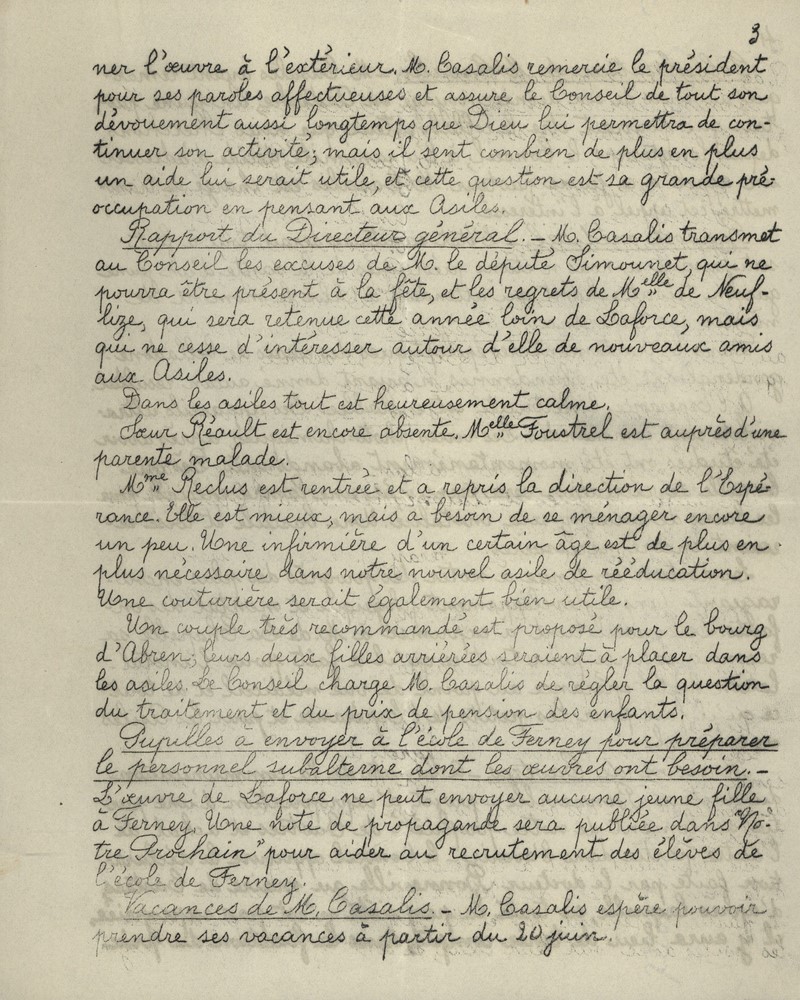 3
ner l'œuvre à l'extérieur. M. Casalis remercie le président
pour ses paroles affectueuses et assure le Conseil de tout son
dévouement aussi longtemps que Dieu lui permettra de con-
tinuer son activité; mais il sent combien de plus en plus
un aide lui serait utile, et cette question est sa grande pré-
occupation en pensant aux Asiles.
Rapport du Directeur général. – M. Casalis transmet
au Conseil les excuses de M. le député Simounet, qui ne
pourra être présent à la fête, et les regrets de Melle de Neuf-
lize, qui sera retenue cette année loin de Laforce, mais
qui ne cesse d'intéresser autour d'elle de nouveaux amis
aux Asiles.
Dans les asiles tout est heureusement calme.
Sœur Réault est encore absente. Melle Foustrel est auprès d'une
parente malade.
Mme Reclus est rentrée et a repris la direction de l'Espé-
rance. Elle est mieux, mais à besoin de se ménager encore
un peu. Une infirmière d'un certain âge est de plus en
plus nécessaire dans notre nouvel asile de rééducation.
Une couturière serait également bien utile.
Un couple très recommandé est proposé pour le bourg
d'Abren; leurs deux filles arriérées seraient à placer dans
les asiles. Le Conseil charge M. Casalis de régler la question
du traitement et du prix de pension des enfants.
Pupilles à envoyer à l'école de Ferney pour préparer
le personnel subalterne dont les œuvres ont besoin. –
L'œuvre de Laforce ne peut envoyer aucune jeune fille
à Ferney. Une note de propagande sera publiée dans "No-
tre Prochain" pour aider au recrutement des élèves de
l'école de Ferney.
Vacances de M. Casalis. – M. Casalis espère pouvoir
prendre ses vacances à partir du 20 juin.